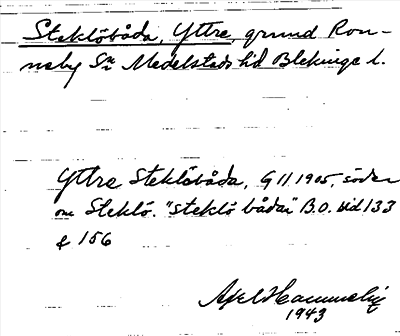 Steklöbåda, Yttre, grund Ron-
neby Sn Medelsteds hd Blekinge l.
Yttre Steklöbåda, G 11 1905, söder
om Steklö. "Steklö bådar" B.O. bid 133
& 156
Axel Hammelig
1943